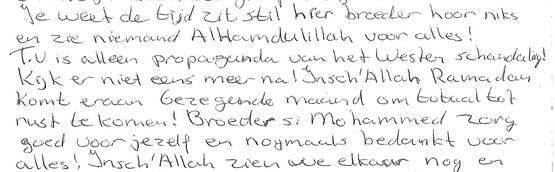 Je weet de tijd zit stil hier broeder hoor niks
en zie niemand AlHamdulillah voor alles!
T.V is alleen propaganda van het Westen schandalig!
Kijk er niet eens meer na! Insch'Allah Ramadan
komt eraan Gezegende maand om totaal tot
rust te komen! Broeder si Mohammed zorg
goed voor jezelf en nogmaals bedankt voor
alles! Insch'Allah zien we elkaar nog en